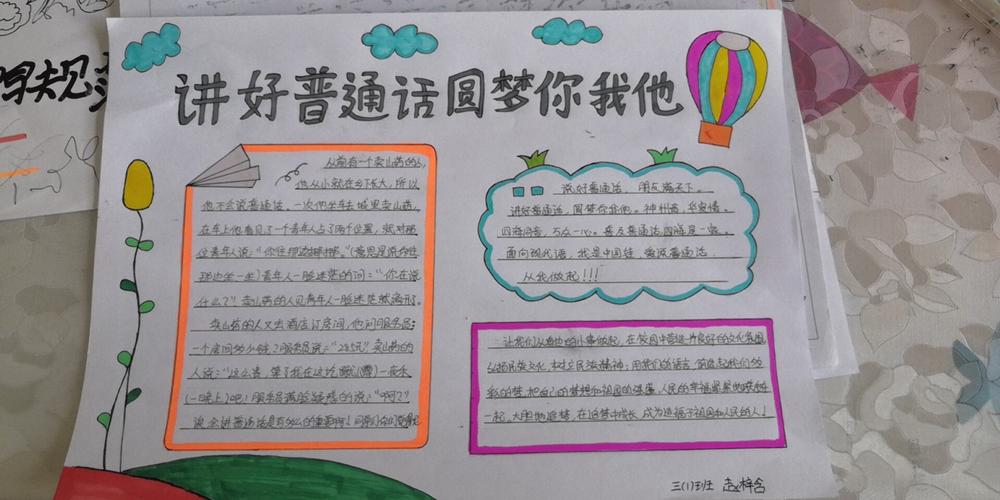 讲好普通话圆梦你我他
从前有一个卖山药的人,
他从小就在乡下长大,所以
他不会说普通话。一次他坐车去城里卖山药,
在车上他看见了一个青年人占了两个位置,就对那
位青年人说:“你往那边
那边坐一坐)青年人一脸迷茫的问:“你在说
什么?”卖山药的人见青年人一脸迷茫就离开了。
卖山药的人又去酒店订房间,他问服务员:
一个房间多少钱?服务员说:“285元”卖山药的
人说:“这么贵,等了我在这吃 一夜
(一晚上)吧!服务员满脸疑惑的说:“啊?”
说会讲普通话是有多么的重要啊!
说好普通话,朋友满天下。
讲好普通话,圆梦你我他。神州音,华夏情。
四海同音,万众一心。普及普通话四海是一家。
面向现代语,我是中国娃,爱说普通话,
从我做起!!!
让我们从身边的小事做起,在校园中营造一片良好的文化氛围,
弘扬民族文化,树立民族精神;用我们的语言,
彩的梦,把自己的梦想和祖国的 、人民的幸福
一起。大胆地追梦,在追梦中成长,成为造福于祖国和人民的人!
三(1)班 赵梓含